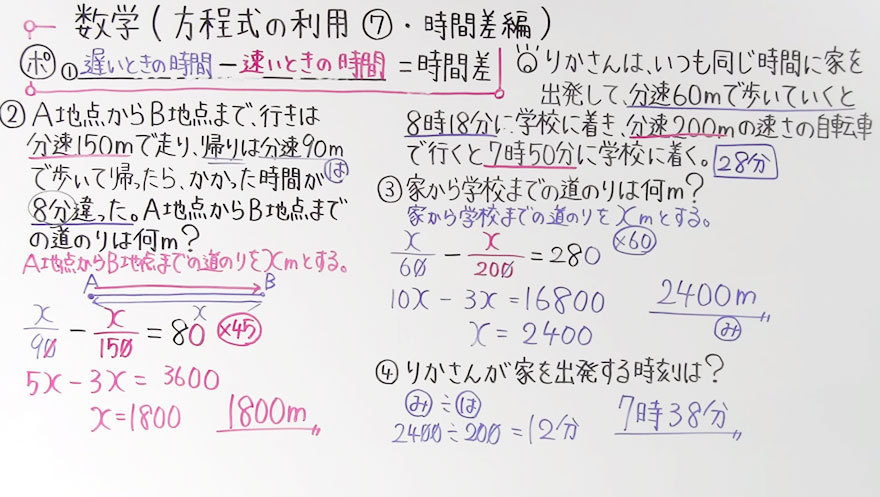 数学(方程式の利用⑦・時間差編)
ポ ①遅いときの時間-速いときの時間=時間差
②A地点からB地点まで、行きは
分速150mで走り、帰りは分速90m
で歩いて帰ったら、かかった時間が は
8分違った。A地点からB地点まで
の道のりは何m?
A地点からB地点までの道のりをxmとする。
A B
x
x/90 - x/150 = 80 ×45
5x-3x= 3600
x=1800 1800m
りかさんは、いつも同じ時間に家を
出発して、分速60mで歩いていくと
8時18分に学校に着き、分速200mの速さの自転車
で行くと7時50分に学校に着く。 28分
③家から学校までの道のりは何m?
家から学校までの道のりをxmとする。
x/60 - x/200 = 280 ×60
10x-3x=16800 2400m
x=2400 み
④りかさんが家を出発する時刻は?
み÷は
2400÷200=12分 7時38分